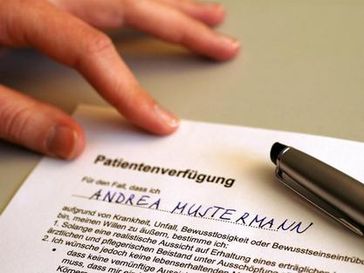 Patientenverfügung
Für den Fall, dass ich
ANDREA MUSTERMANN
aufgrund von Krankheit, Unfall, Bewusstlosigkeit oder Bewusstseinseintrüb
bin, meinen Willen zu äußern, bestimme ich:
1. Solange eine realistische Aussicht auf Erhaltung eines erträglichen
ärztlichen und pflegerischen Beistand unter Ausschöpfung
2. Ich wünsche jedoch keine lebenserhaltenden
dass keine vernünftige Aussicht
muss, dass mir ein
Körper